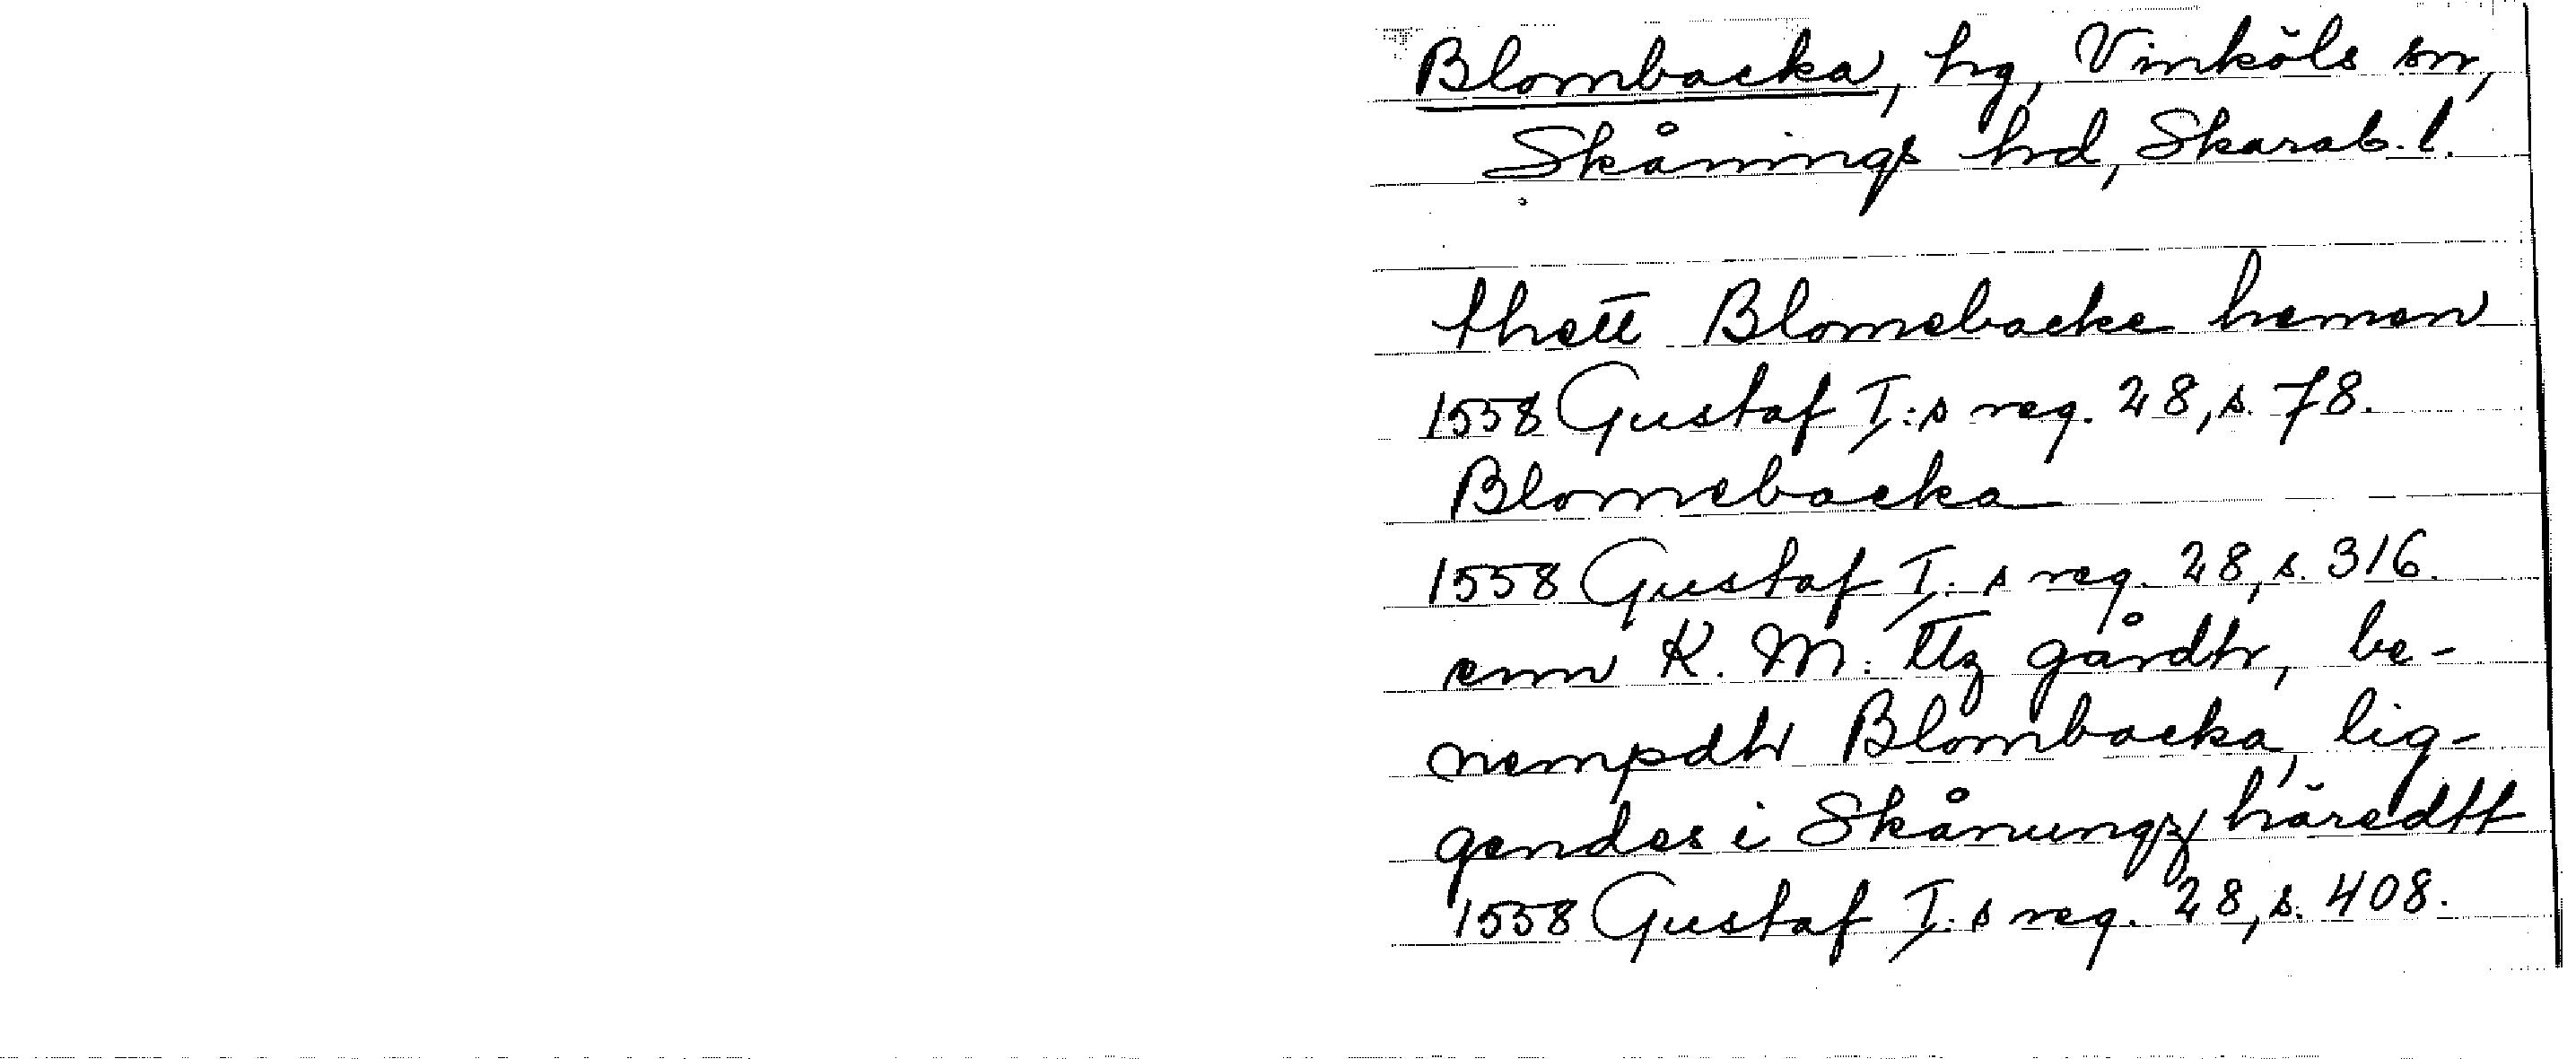 Blombacka, hg, Vinköls sn,
Skånings hd, Skarab. l.
thett Blomebacke hemen
1558 Gustaf I:s reg. 28, s. 78.
Blomebacka
1558 Gustaf I:s reg. 28, s. 316.
enn K. M: ttz gårdh, be-
nempdh Blombacka, lig-
gendes i Skånungz häredtt
1558 Gustaf I:s reg. 28, s. 408.